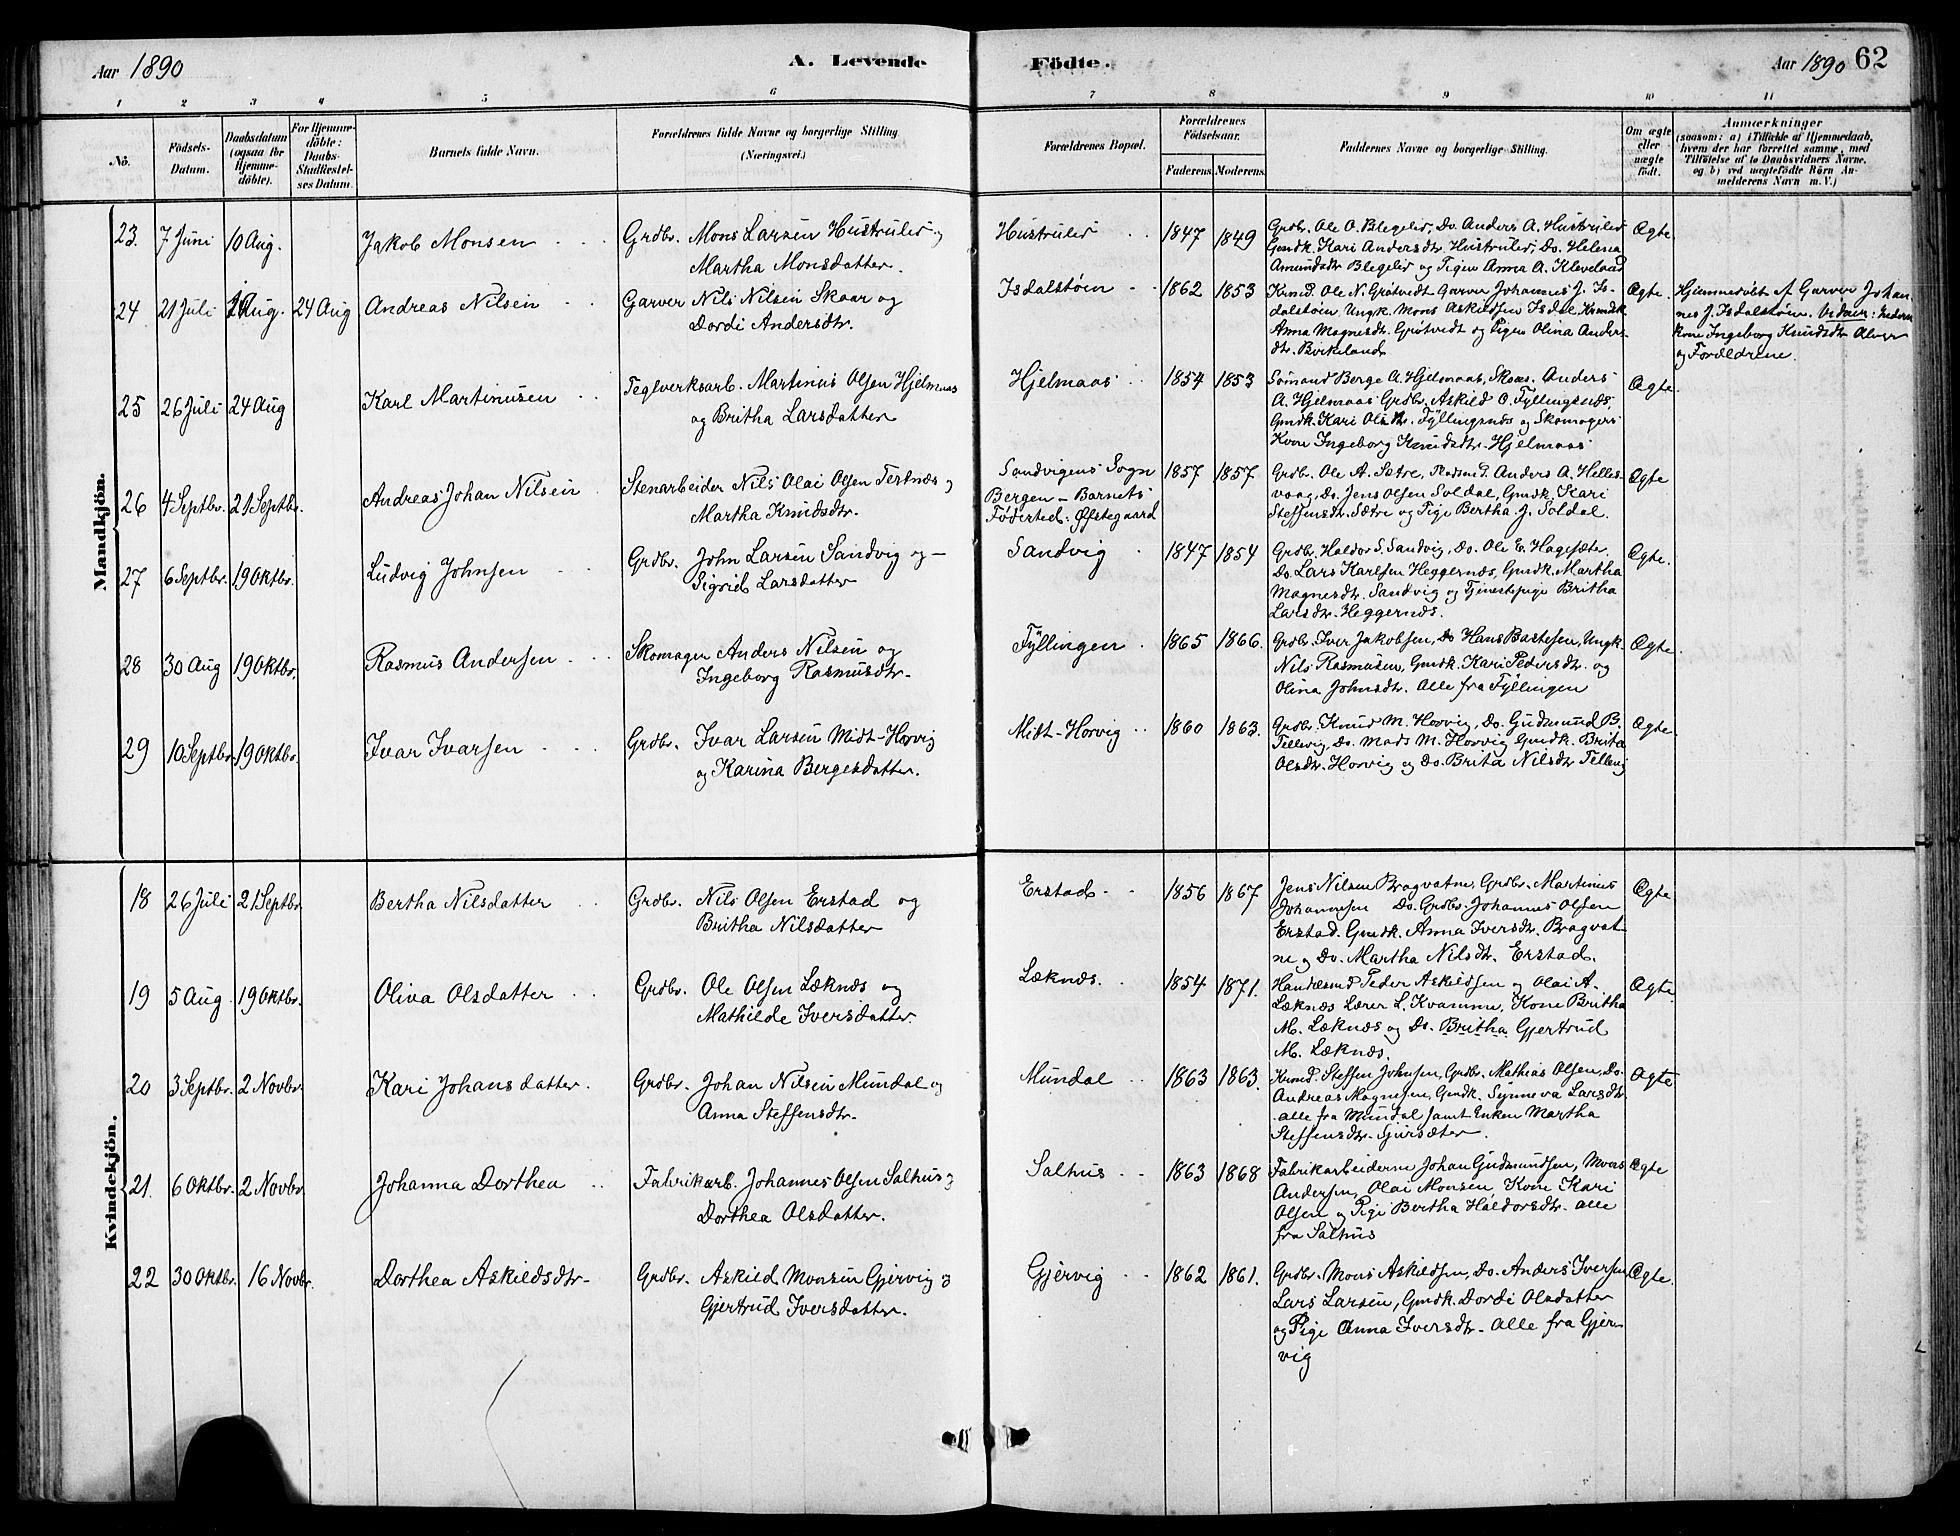 Aar 1890 A. Levende Fødte. Aar 1890 62
1 2 3 4 5 6 7 8 9 10 11
No. Fødsels-Datum. Daabsdatum (ogsaa for Hjemme-døbte). For Hjemme-døbte: Daabs-Stadfæstelses Datum. Barnets fulde Navn. Forældrenes fulde Navne og borgerlige Stilling (Næringsvei.) Forældrenes Bopæl. Forældrenes Fødselsaar. Faderens. Moderens. Faddernes Navne og borgerlige Stilling. Om ægte eller uægte født. Anmærkninger
(saasom: a) i Tilfælde af Hjemmedaab, hvem der har forrettet samme, med Tilføielse af to Daabsvidners Navne, og b) ved uægtefødte Børn Anmelderens Navn m. V.)
Mandkjøn.
23. 7 Juni 10 Aug. Jakob Monsen Grdbr. Mons Larsen Hustrulid og
Martha Monsdatter.
Hustrulid 1847 1849
Grdbr. Ole O. Blegelid, Do. Anders A. Hustrulid
Gmdk. Kari Andersdtr. Hustrulid, Do. Helena
Amundsdtr Blegelid og Pigen Anna A. Kleveland
Ægte
24 21 Juli Aug. 24 Aug Andreas Nilsen Garver Nils Nilsen Skaar og
Dordi Andersdtr.
Isdalstøen 1862 1853
Krmd. Ole N. Grøtvedt Garver Johannes J. Is-
dalstøen, Ungk. Mons Askildsen Isdal, Krmdk
Anna Magnesdtr. Grøtvedt og Pigen Olina Anders-
dtr. Birkeland
Ægte.
Hjemmedøbt af Garver Johan-
nes J. Isdalstøen. Vidner:
kone Ingeborg Knudsdtr Alver
og Forældrene.
25 26 Juli 24 Aug Karl Martinusen Teglverksarb. Martinus Olsen Hjelmaas
og Britha Larsdatter
Hjelmaas 1854 1853
Sømand Berge A. Hjelmaas, Skom. Anders
A. Hjelmaas Grdbr. Askild O. Fyllingsnæs,
Gmdk. Kari Olsdtr. Fyllingsnæs og Skomagers
Kone Ingeborg Knudsdtr. Hjelmaas
Ægte.
26 4 Septbr. 21 Septbr. Andreas Johan Nilsen Stenarbeider Nils Olai Olsen Tertnæs og
Martha Knudsdtr.
Sandvigens Sogn
Bergen - Barnets
Fødested: Østegaard
1857 1857
Grdbr. Ole A. Sætre, Anders A. Helles-
vaag, Do. Jens Olsen Soldal, Gmdk. Kari
Steffensdtr. Sætre og Pige Bertha J. Soldal.
Ægte
27 6 Septbr. 19 Oktbr. Ludvig Johnsen Grdbr. John Larsen Sandvig og
Sigrid Larsdatter
Sandvig 1847 1854
Grdbr. Haldor S. Sandvig, Do. Ole E. Hagesæter,
Do. Lars Karlsen Heggernæs, Gmdk. Martha
Magnesdtr. Sandvig og Tjenestepige Britha
Larsdtr. Heggernæs.
Ægte.
28 30 Aug 19 Oktbr. Rasmus Andersen Skomager Anders Nilsen og
Ingeborg Rasmusdtr.
Fyllingen 1865 1866.
Grdbr. Iver Jakobsen, Do Hans Bastesen, Ungk.
Nils Rasmusen, Gmdk. Kari Pedersdtr. og
Olina Johnsdtr. Alle fra Fyllingen
Ægte.
29 10 Septbr. 19 Oktbr. Ivar Ivarsen Grdbr. Ivar Larsen Midt-Horvig
og Karina Bergesdatter.
Midt-Horvig 1860 1863.
Grdbr. Knud M. Horvig, Do. Gudmund B.
Tellevig, Do. Mads M. Horvig Gmdk. Brita
Olsdtr. Horvig og Do. Brita Nilsdtr Tellevig
Ægte.
Kvindekjøn.
18 26 Juli 21 Septbr. Bertha Nilsdatter Grdbr. Nils Olsen Erstad og
Britha Nilsdatter
Erstad 1856 1867.
Jens Nilsen Bragvatne, Grdbr. Martinus
Johannesen Do. Grdbr. Johannes Olsen
Erstad. Gmdk. Anna Iversdtr. Bragvat-
ne og Do. Martha Nilsdtr. Erstad.
Ægte
19 5 Aug. 19 Oktbr. Oliva Olsdatter Grdbr. Ole Olsen Leknæs og
Mathilde Iversdatter.
Leknæs. 1854 1871.
Handelsmd Peder Askildsen og Olai A.
Leknæs Lærer L. Kvamme, Kone Britha
M. Leknæs og Do. Britha Gjertrud
M. Leknæs.
Ægte
20 3 Septbr. 2 Novbr. Kari Johansdatter. Grdbr. Johan Nilsen Mundal og
Anna Steffensdtr.
Mundal 1863 1863.
Krmd. Steffen Johnsen, Grdbr. Mathias Olsen, Do.
Andreas Magnesen, Gmdk. Synneva Larsdtr.
alle fra Mundal samt Enken Martha
Steffensdtr. Sjursæter.
Ægte
21. 6 Oktbr. 2 Novbr. Johanna Dorthea Fabrikarb. Johannes Olsen Salhus og
Dorthea Olsdatter.
Salhus 1863 1868
Fabrikarbeiderne Johan Gudmundsen, Mons
Andersen, Olai Monsen, Kone Kari
Olsen og Pige Bertha Haldorsdtr. alle
fra Salhus
Ægte
22 30 Oktbr. 16 Novbr. Dorthea Askildsdtr. Grdbr. Askild Monsen Gjervig og
Gjertrud Iversdatter.
Gjervig 1862 1861.
Grdbr. Mons Askildsen, Do. Anders Iversen
Lars Larsen, Gmdk. Dordi Olsdatter
og Pige Anna Iversdtr. Alle fra Gjer-
vig
Ægte.